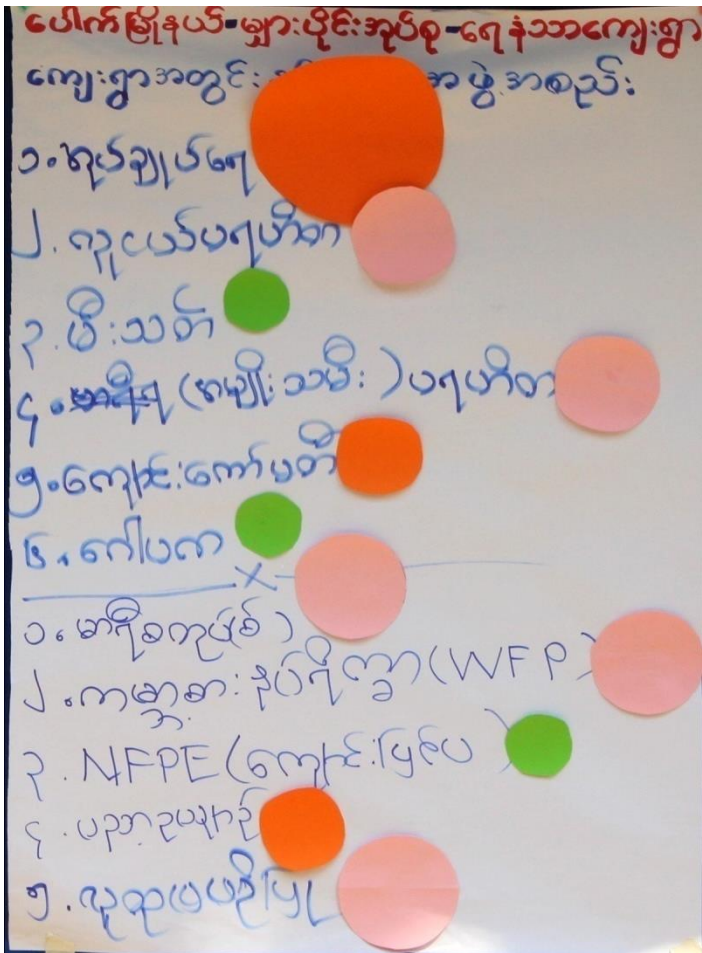 ပေါက်မြို့နယ်-မျှားပိုင်းအုပ်စု-ရေနံသာကျေးရွာ
ကျေးရွာအတွင်း အဖွဲ့အစည်း
၁။ အုပ်ချုပ်ရေး
၂. လူငယ်ပရဟိတ
၃. မီးသတ်
၄. (အမျိုးသမီး) ပရဟိတ
၅. ကျောင်းကော်မတီ
၆. ဂေါပက
၂. ကမ္ဘာ့စားနပ်ရိက္ခာ (WFP)
၃. NFPE (ကျောင်းပြင်ပ)
၄. ပညာ့ဥယျာဉ်
၅. လူထုဗဟိုပြု